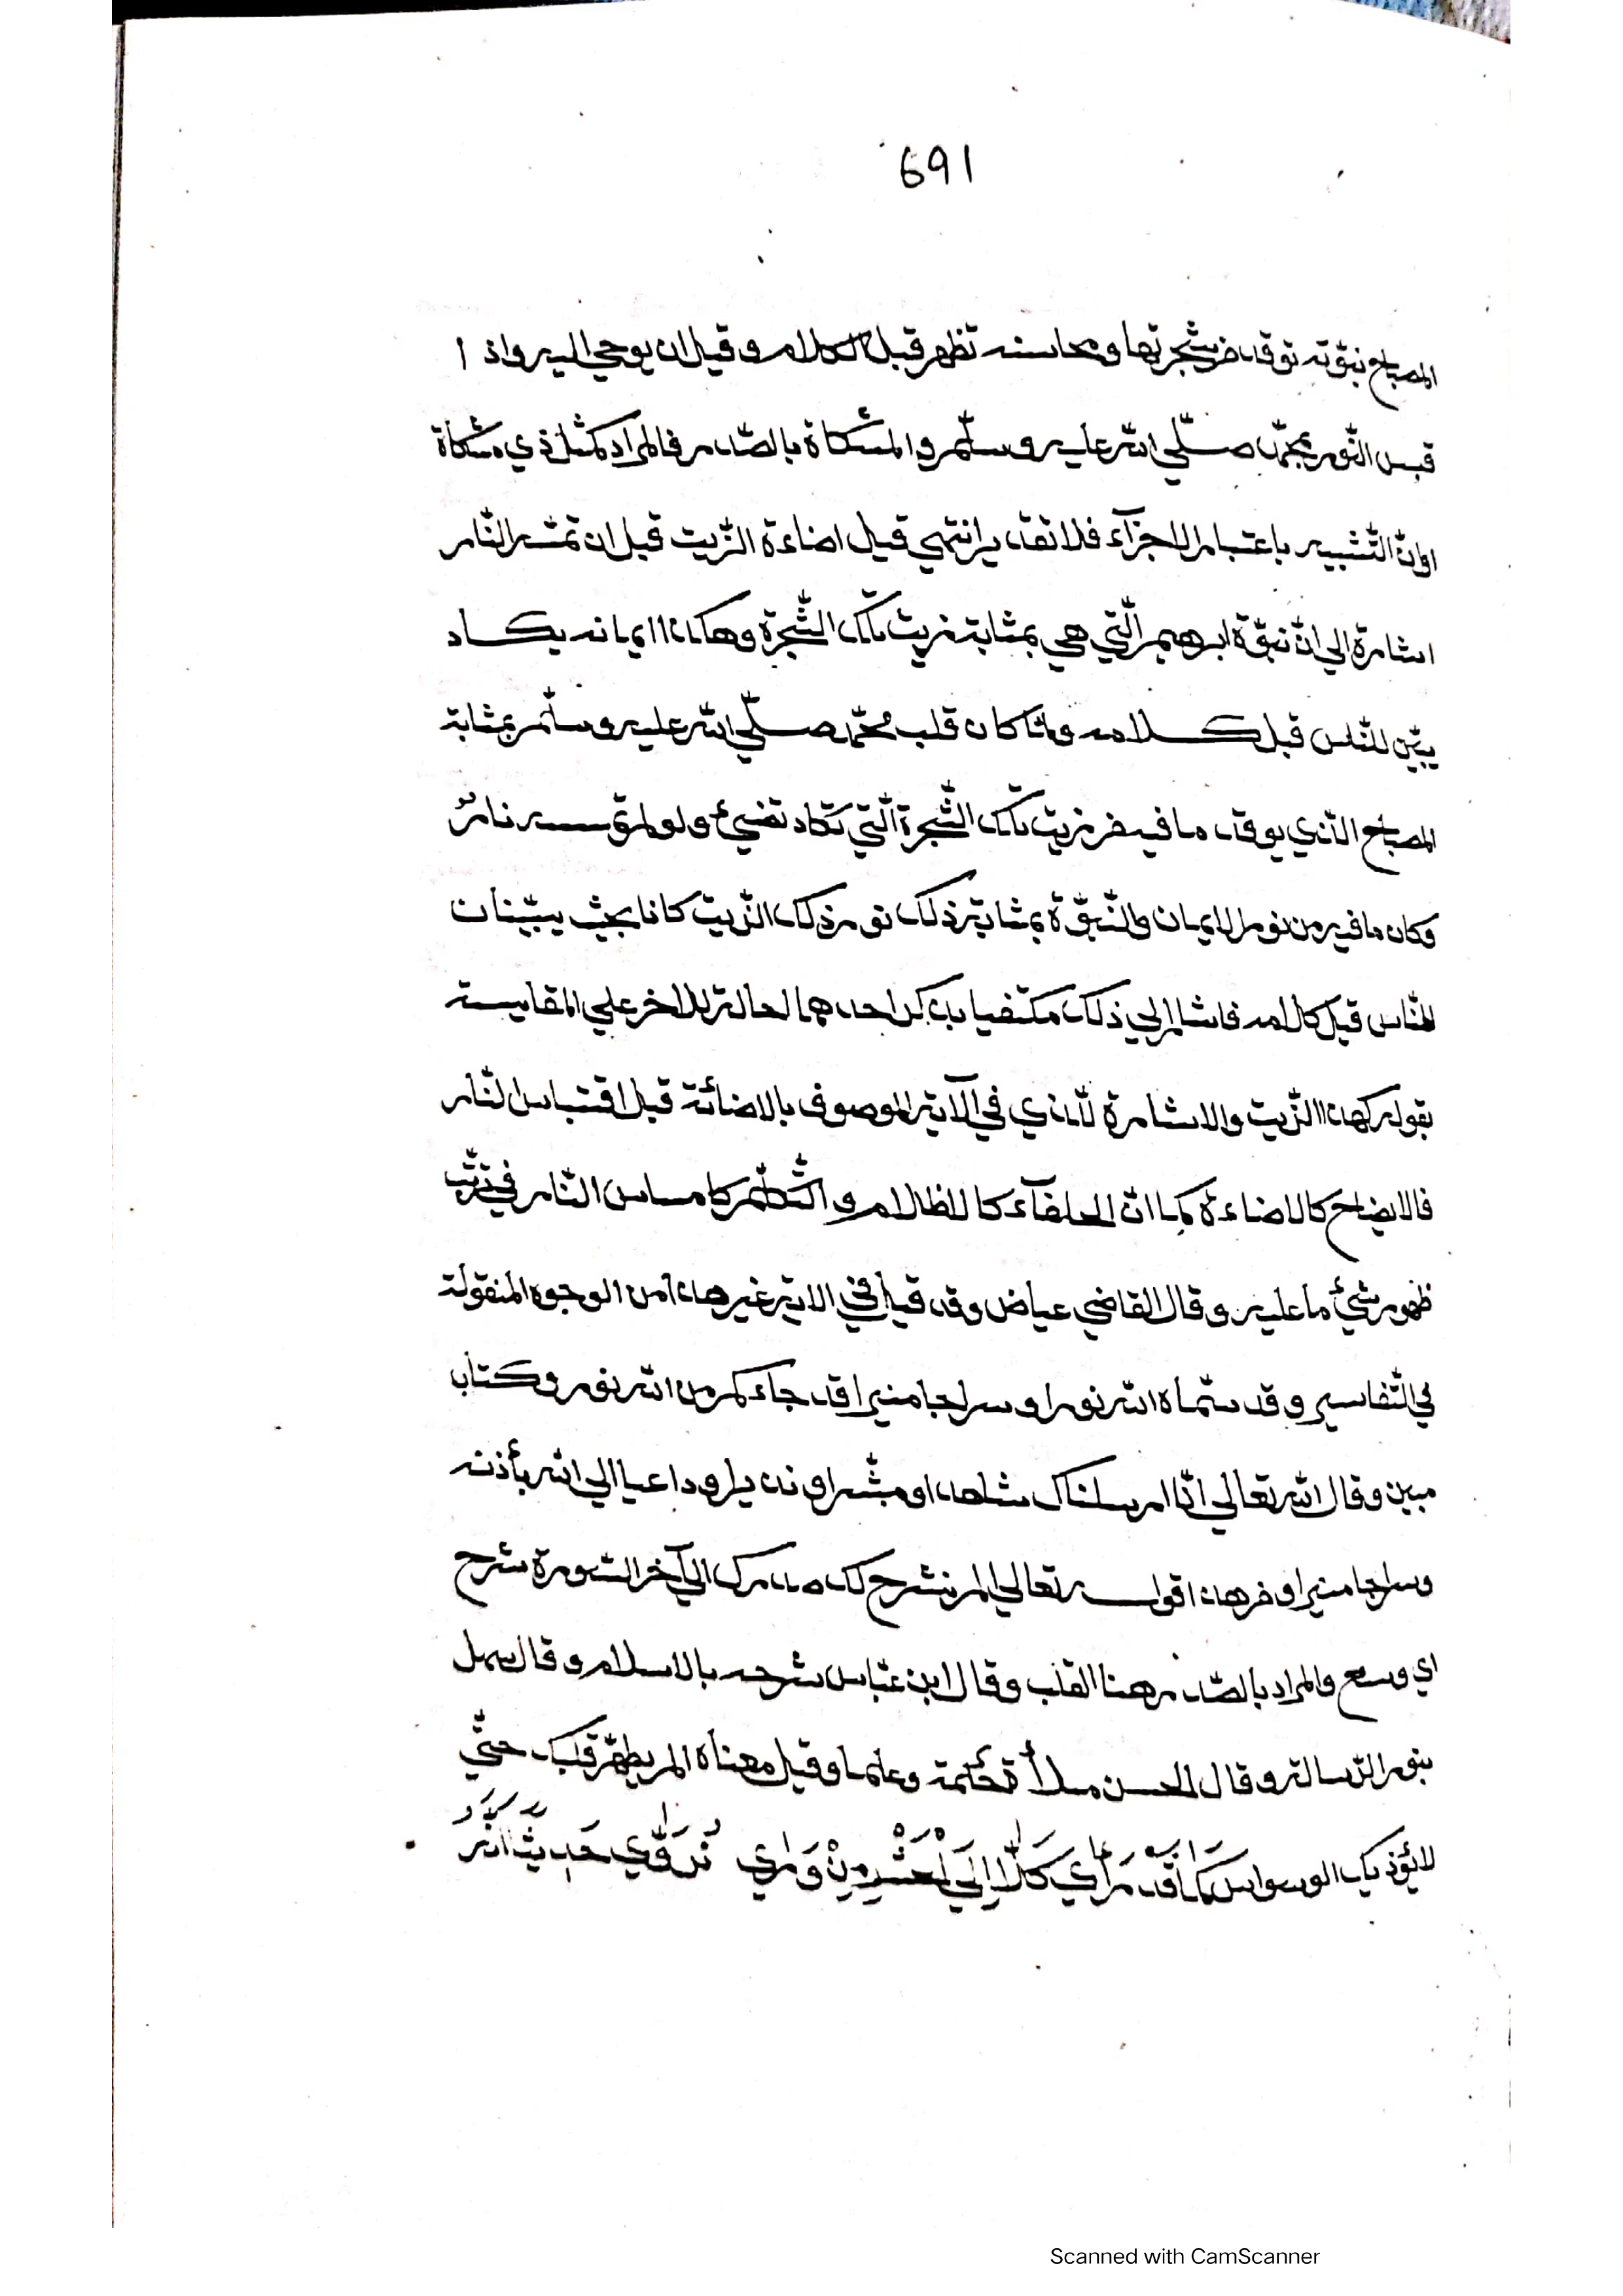 691
المصباح نبوّته توقد من شجرتها ومحاسنه تظهر قبل الكلام و قيل ان يوحي اليه واذ ا
قبس النّور بمحمّد صلّي الله عليه وسلّم والمشكاة بالصّدر فالمراد كمثل ذي مشكاة
اوانّ التّشبيه باعتبار الاجزآء فلا تقدير انتهي قيل اضاءة الزّيت قبل ان تمسّه النّار
اشارة الي انّ نبوّة ابرهيم الّتي هي بمثابة زيت تلك الشّجرة وهكذا ايمانه يكاد
يبيّن للنّاس قبل كلامه ولمّا كان قلب محمّد صلّي الله عليه وسلّم بمثابة
المصباح الّذي يوقد ما فيه من زيت تلك الشّجرة الّتي تكاد تضيئ ولو لم تمسسه نارٌ
وكان ما فيه من نور الايمان والنّبوّة بمثابة ذلك نور ذلك الزّيت كانا بحيث يبيّنان
للنّاس قبل كلامه فاشار الي ذلك مكتفيا بذكر احدهما لحالة للاخر علي المقايسة
بقوله كهذا الزّيت والاشارة للّذي في الآية الموصوف بالاضائة قبل اقتباس النّار
فالايضاح كالاضاءة كما انّ الخفآء كالظلام و التّكلّم كامساس النّار في ترتّب
ظهور شيئ ما عليه و قال القاضي عياض وقد قيل في الاية غير هذا من الوجوه المنقولة
في التّفاسير و قد سمّاه الله نورا و سراجا منيرا قد جاءكم من الله نور و كتاب
مبين وقال الله تعالي انّا ارسلناك شاهدا ومبشّرا ونذيرا وداعيا الي الله بأذنه
وسراجا منيرا ومن هذا قوله تعالي الم نشرح لك صدرك الي آخر السّورة شرح
اي وسع والمراد بالصّدر هنا القلب وقال ابن عبّاس شرحه بالاسلام و قال سهل
بنور الرّسالة و قال الحسن ملأه حكمة وعلما وقيل معناه الم يطهّر قلبك حتّي
لا يؤذيك الوسواس كَمَا قَدْ رَأي كَلَّا إِلَي مِنْ وَرَاي نُرَقِّي حَدِيثَ
Scanned with CamScanner